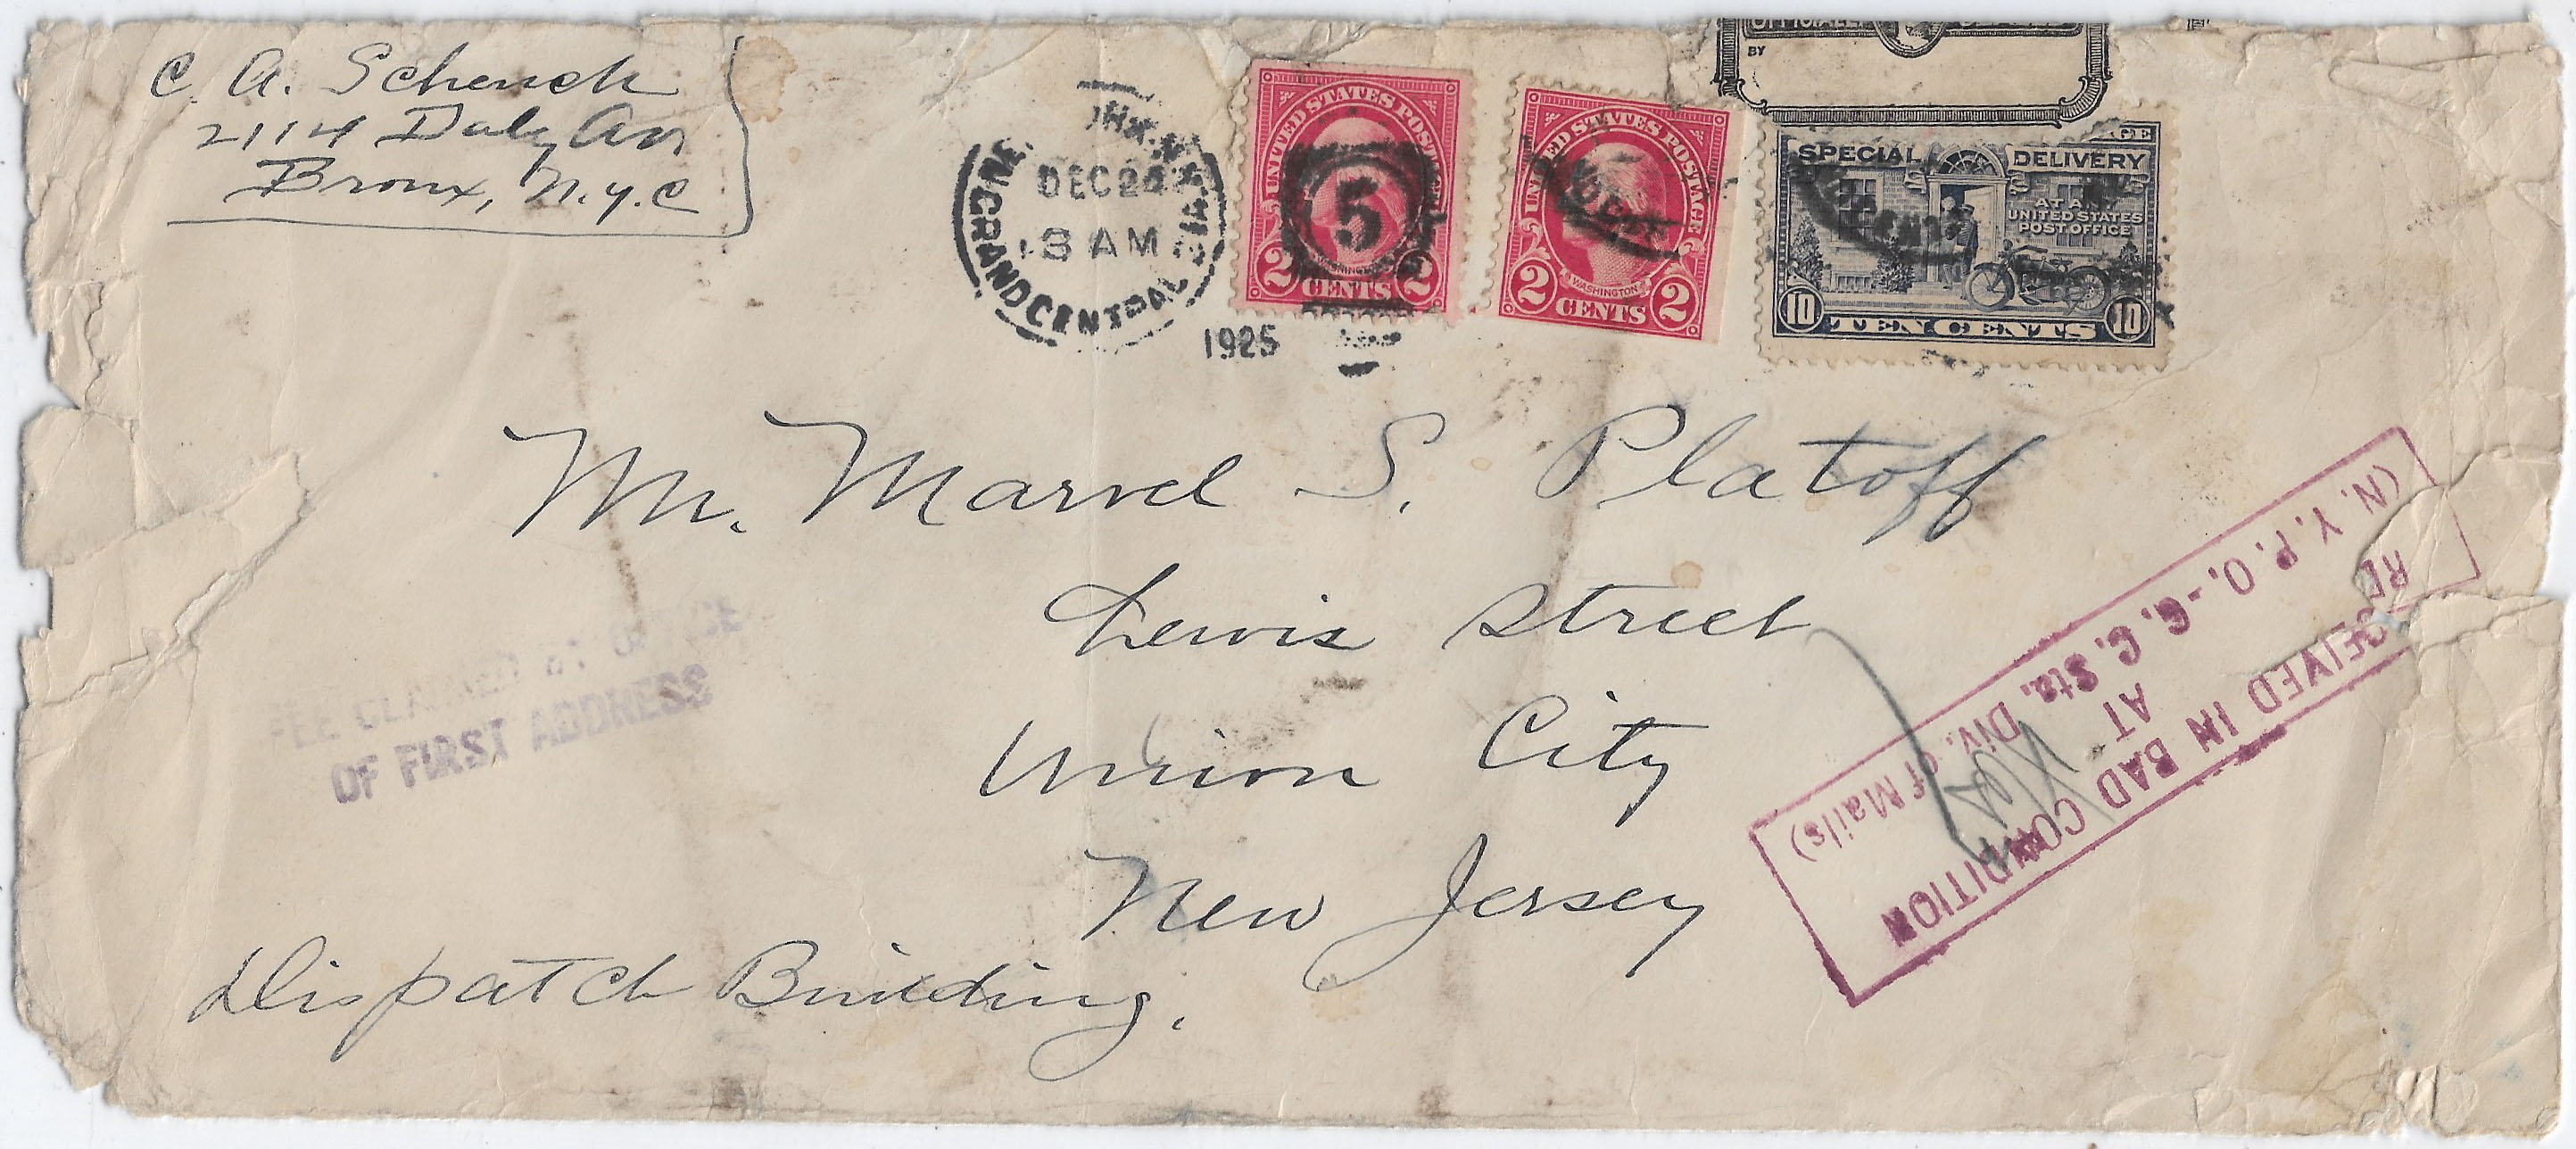 C. A. Schenck
2114 Daly Av
Bronx, N.Y.C
DEC 24
3 AM
GRAND CENTRAL STA.
1925
UNITED STATES POSTAGE
5
WASHINGTON
2 CENTS 2
UNITED STATES POSTAGE
WASHINGTON
2 CENTS 2
OFFICIALLY
BY
SPECIAL DELIVERY
AT ANY
UNITED STATES
POST OFFICE
10 TEN CENTS 10
Mr. Marvel S. Platoff
Lewis Street
Union City
New Jersey
Dispatch Building.
FEE CLAIMED AT OFFICE
OF FIRST ADDRESS
RECEIVED IN BAD CONDITION
AT
(N. Y. P. O. - G. C. Sta. Div. of Mails)